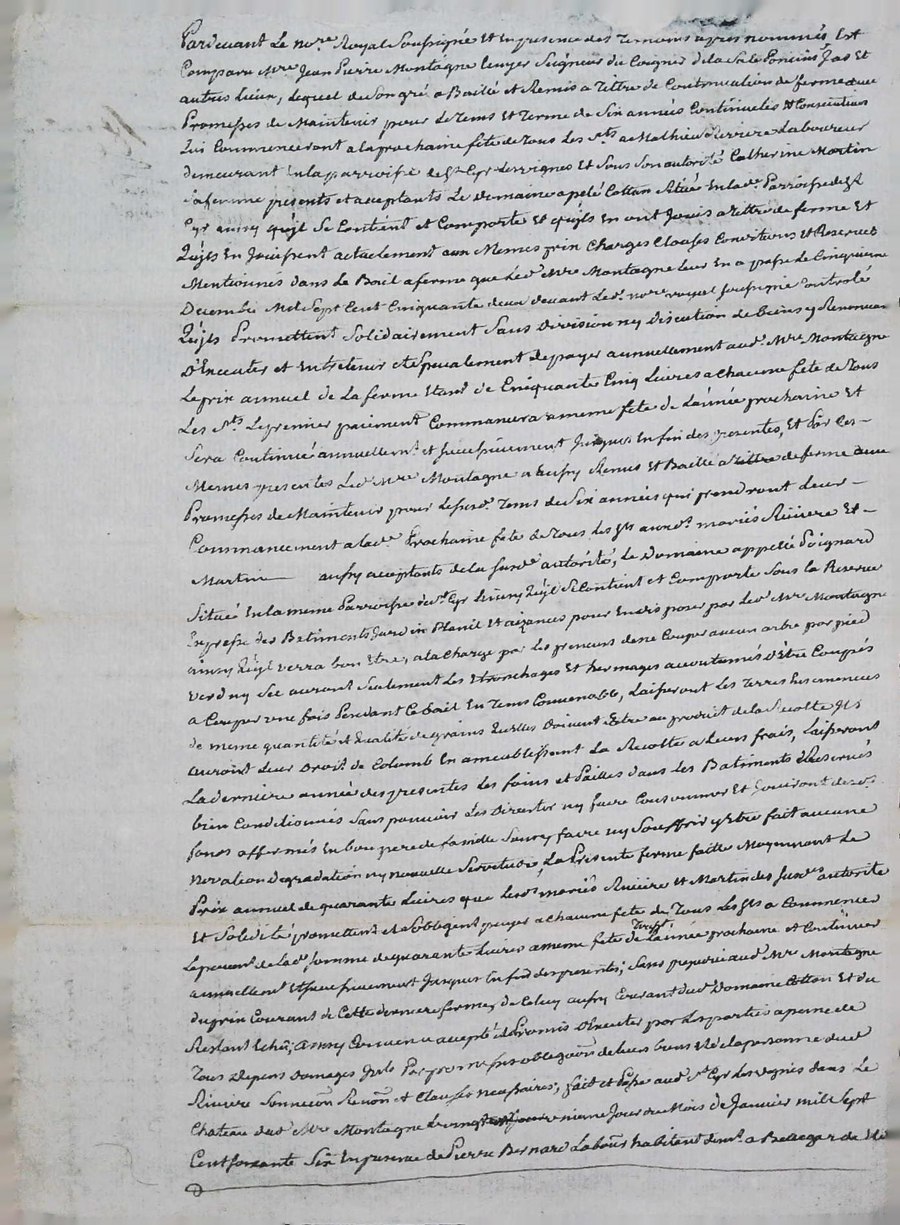 Pardevant Le no.re Royal Soussigné Et En presence des Temoins apres nommés Est
Comparu M.re Jean Pierre Montagne Ecuyer Seigneur du Poignet de la Sale Poncins Jas Et
autres Lieux, Lequel de Son gré a Baillé et Remis a Tittre de Continuation de ferme avec
Promesses de Maintenir pour Le Tems et Terme de Six années Continueles & Consecutives
qui Commenceront a la prochaine fête de Tous Les S.ts a Mathieu Riviere Laboureur
demeurant En la parroisse de S.t Cyr Les vignes Et Sous Son autorité Catherine Martin
Sa femme presents et acceptants Le domaine apelé Cotton Situé En lad.e Parroisse de S.t
Cyr ainsy qu'il Se Contient et Comporte Et qu'ils En ont Joui a tittre de ferme Et
qu'ils En Jouissent actuelement aux Memes prix Charges Clauses Conditions Et Reserves
Mentionnés dans le Bail a ferme que Led.t M.re Montagne Leur En a passé Le Cinquieme
Decembre Mil Sept Cent Cinquante deux devant Led.t no.re royal soussigné Controlé
qu'ils Promettent Solidairement Sans Division ny Discution de biens y Renoncant
D'Executer et Entretenir et Specialement de payer annuellement aud.t M.re Montagne
Le prix annuel de La ferme Etant de Cinquante Cinq Livres a chacune fête de Tous
Les S.ts Le premier paiement Commancera a meme fête de L'année prochaine Et
Sera Continué annuellem.t et successivement Jusques En fin des presentes, Et Par Ces
Memes presentes Led.t M.re Montagne a aussy Remis Et Baillé a tittre de ferme avec
Promesses de Maintenir pour Le susd.t Tems de Six années qui prendront Leur
Commancement a lad.e Prochaine fête de Tous Les Sts auxd.ts mariés Riviere Et
Martin aussy acceptants de la susd.e autorité, Le Domaine appellé Poignard
Situé En la meme Parroisse de S.t Cyr Ainsy qu'il Se Contient et Comporte Sous la Reserve
Expresse des Batiments Jardin Planil Et aizances pour En disposer par Led.t M.re Montagne
ainsy qu'il verra bon Etre, a la Charge par Les preneurs de ne Couper aucun arbre par pied
verd ny Sec auront Seulement Les Etronchages Et hermages accoutumés d'Etre Coupés
a Couper une fois Pendant Ce bail En Tems Convenable, Laisseront Les Terres Ensemencés
de meme quantité et Qualité de grains qu'elles Doivent Estre au produit de la Recolte Ils
auront Leur Droit de Colomb En ameublissant La Recolte a Leurs frais, Laisseront
La derniere année des presentes Les foins et Pailles dans Les Batiments Reservés
bien Conditionnés Sans pouvoir Les Divertir ny faire Consommer Et Jouiront desd.ts
fonds affermés En bon pere de famille Sans y faire ny Souffrir y Etre fait aucune
novation Degradation ny nouvelle Servitude, La Presente ferme faitte Moyennant Le
Prix annuel de quarante Livres que Lesd.ts mariés Riviere Et Martin des susd.es autorité
Et Solidité promettent et s'obligent payer a chacune fête de Tous Les Sts a Commencer
Le paiem.t de lad.e somme de quarante Livres a meme fête de Touss.t L'année prochaine et Continuer
annuellem.t Et successivement Jusques En fin des presentes; Sans prejudice aud.t M.re Montagne
du prix Courant de Cette derniere ferme, de Celuy aussy Courant dud.t Domaine Cotton Et du
Restant Echu, ainsy Convenu accepté et Promis d'Executer par Les parties a peine de
Tous Depens Domages Par promesses obligaons de leurs biens Et de la personne dud.t
Riviere Soumicons Renon et Clauses necessaires, fait et Passé aud.t S.t Cyr Les vignes dans Le
Chateau dud.t M.re Montagne Le vingt nieme Jour du Mois de Janvier mil Sept
Cent soixante Six En presence de Pierre Bernard Labour habitant dem.t a Bellegarde